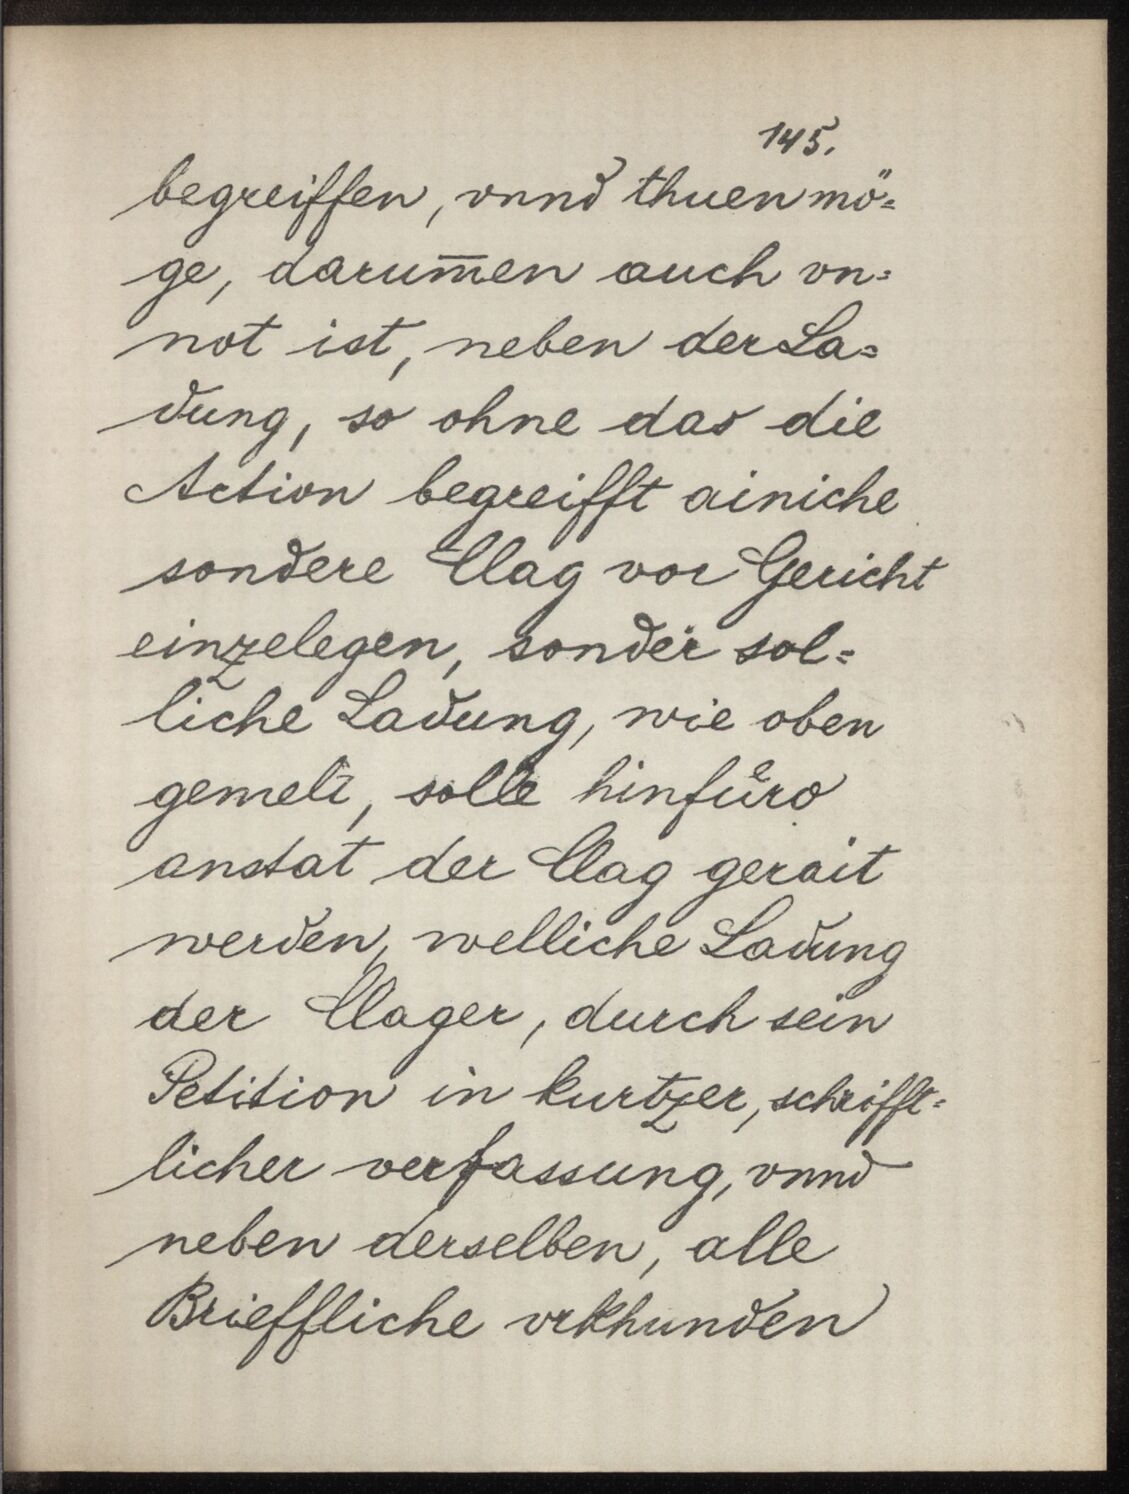 145.
begreiffen, vnnd thuen mö=
ge, darum̅en auch vn=
not ist, neben der La=
dung, so ohne das die
Action begreifft ainiche
sondere Clag vor Gericht
einzelegen, sonder sol=
liche Ladung, wie oben
gemelt, solle hinfůro
anstat der Clag gerait
werden, welliche Ladung
der Clager, durch sein
Petition in kurtzer, schrifft=
licher verfassung, vnnd
neben derselben, alle
Brieffliche vrkhunden